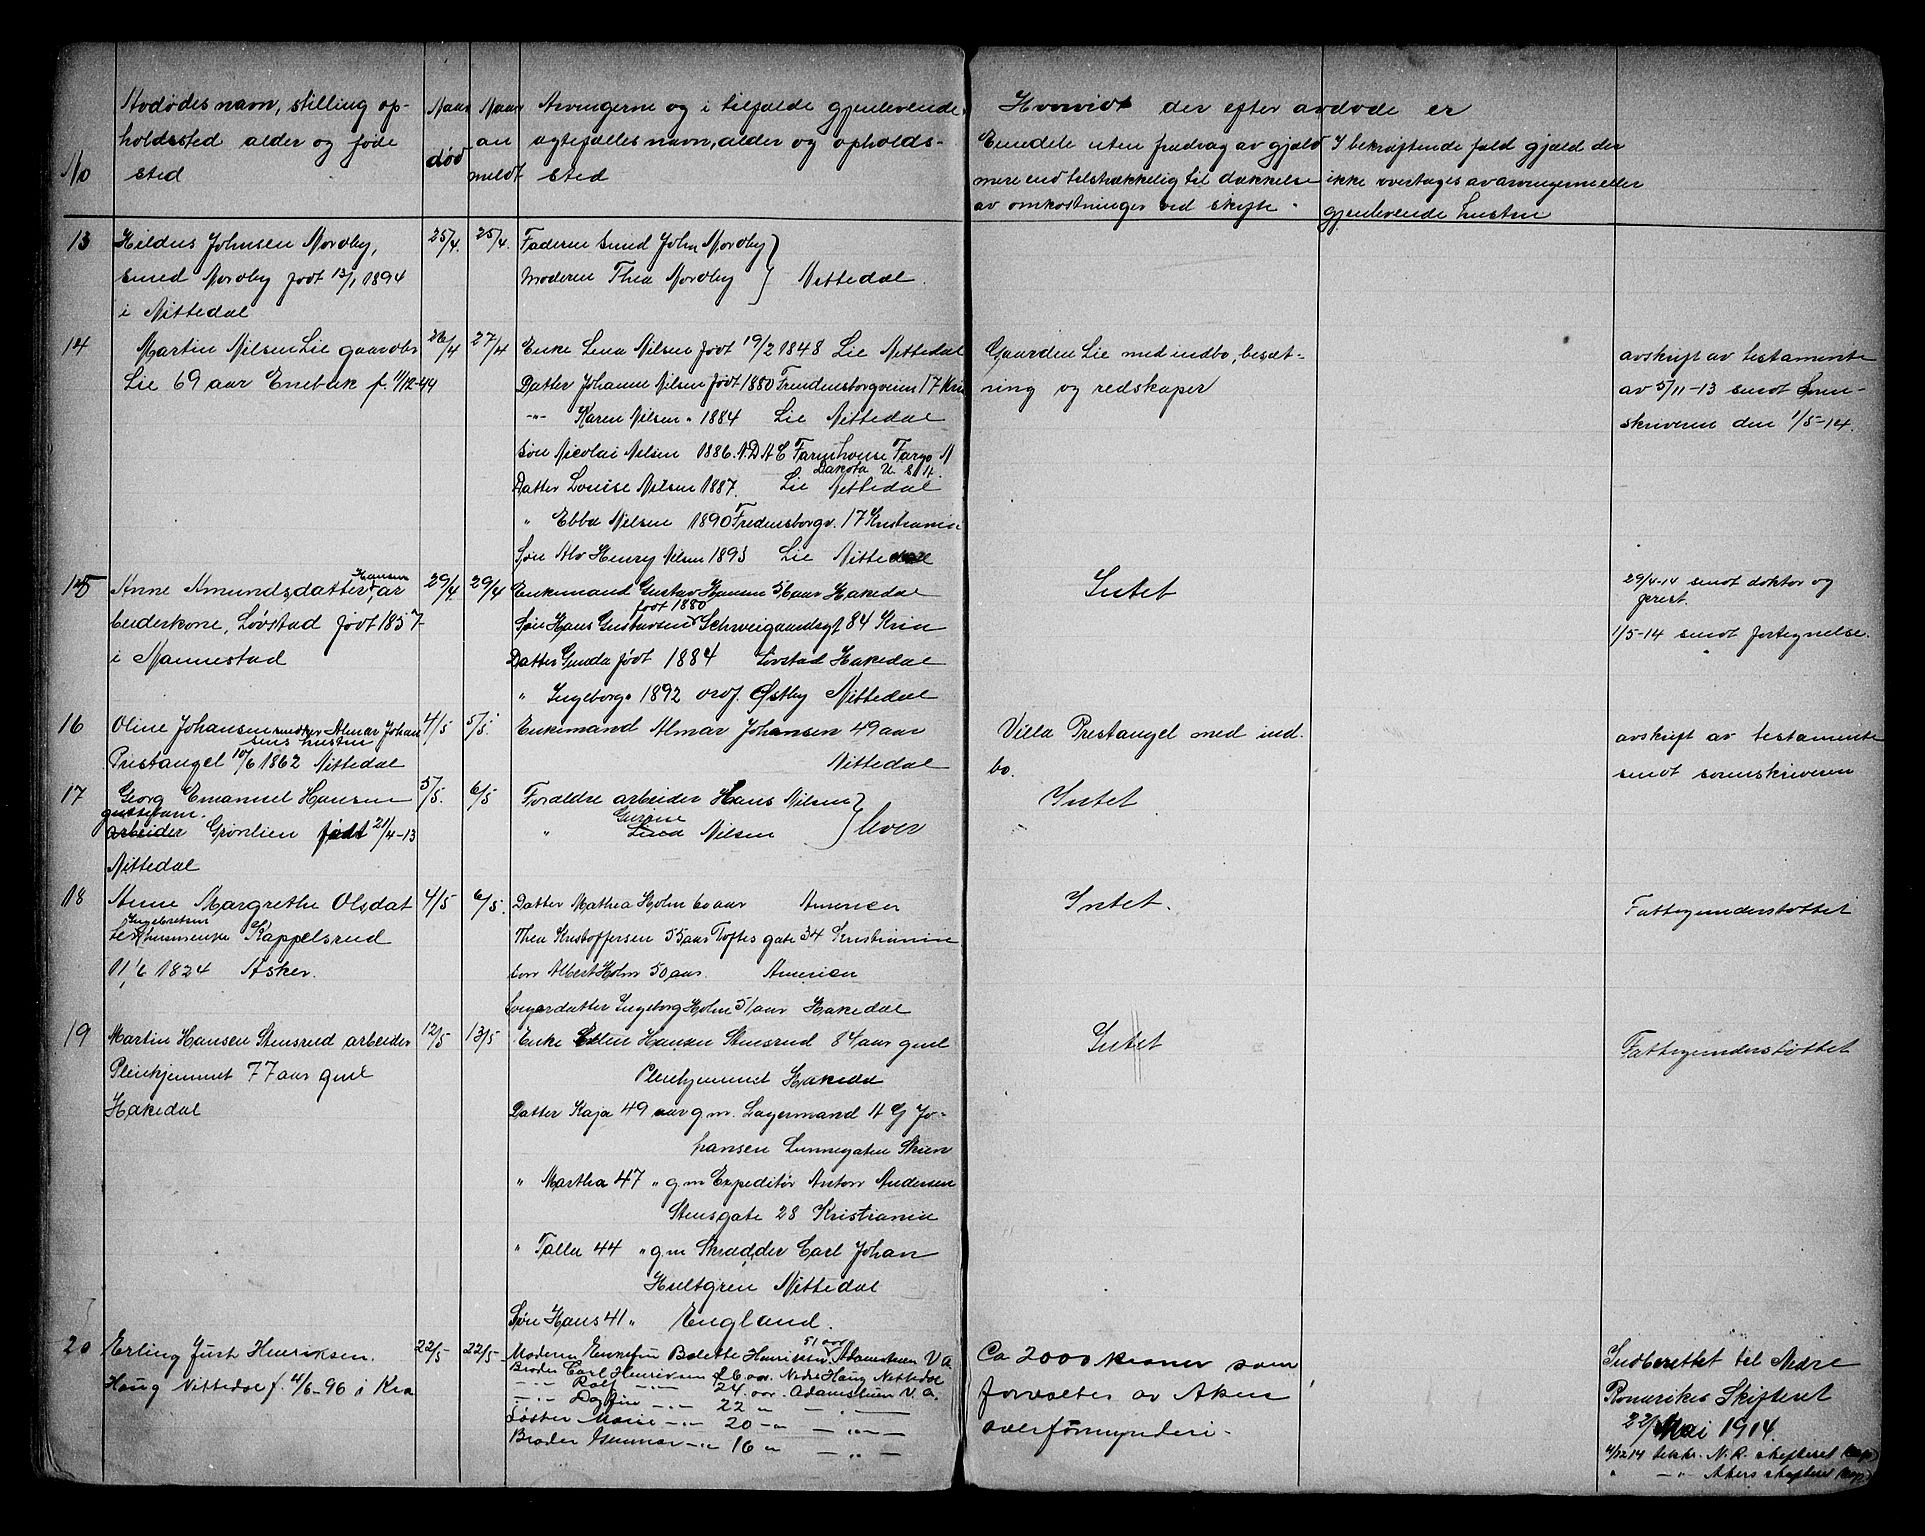 No
Avdødes navn, stilling op-
holdssted alder og føde
sted
Naar
død
Naar
an
meldt
Arvingerne og i tilfælde gjenlevende
egtefælles navn, alder og opholds-
sted
Hvorvidt der efter avdøde er
Eiendele uten fradrag av gjæld
mere end tilstrækkelig til dækkelse
av omkostninger ved skifte.
I bekræftende fald gjæld der
ikke overtages av arvingerne eller
gjenlevende hustru
13
Hildus Johnsen Nordby,
smed Nordby født 13/1 1894
i Nittedal
25/4.
25/4.
Faderen smed John Nordby
moderen Thea Nordby } Nittedal.
14
Martin Nilsen Lie gaardbr
Lie 69 aar Enebak f. 11/12-44
26/4
27/4
Enke Lina Nilsen født 19/2 1848 Lie Nittedal
Datter Johanne Nilsen født 1880 Fredensborgveien 17 Kria
-"- Karen Nilsen " 1884 Lie Nittedal
Søn Nicolai Nilsen 1886. N.D.A.C Farmhouse Fargo N
Dakota U. S. A.
Datter Louise Nilsen 1887. Lie Nittedal
" Ebba Nilsen 1890 Fredensborgv. 17 Kristiania
Søn Alv Henry Nilsen 1893 Lie Nittedal
Gaarden Lie med indbo, besæt-
ning og redskaper
avskrift av testamente
av 5/11-13 sendt Soren-
skriveren den 1/5-14.
15
Anne Amundsdatter Hansen, ar
beiderskone, Løvstad født 1857
i Nannestad
29/4.
29/4
Enkemand Gustav Hansen 56 aar Hakedal
født 1880
Søn Hans Gustavsen Schweigaardsgt 84 Kria
Datter Gunda født 1884 Løvstad Hakedal
" Ingeborg " 1892 Østby Nittedal
Intet
29/4-14 sendt doktor og
prest.
1/5-14 sendt fortegnelse.
16
Oline Johansen Almar Johan
sens hustru
Prestangel 10/6 1862 Nittedal
4/5
5/5
Enkemand Almar Johansen 49 aar
Nittedal
Villa Prestangel med ind-
bo.
avskrift av testamente
sendt sorenskriveren
17
Georg Emanuel Hansen
gustebarn.
arbeider Grønlien født 21/4-13
Nittedal
5/5.
6/5
Forældre arbeider Hans Nilsen
Gurine
" Nilsen } lever
Intet
18
Anne Margrethe Olsdat
Ingebretsen
Kappelsrud
11/6 1824 Asker.
4/5
6/5.
Datter Mathea Holm 60 aar Amerika
Thea Kristoffersen 55 aar Toftes gate 34 Kristiania
søn Albert Holm 50 aar. Amerika
Svigerdatter Ingeborg Holm 51 aar Hakedal
Intet.
Fattigunderstøttet
19
Martin Hansen Stensrud arbeider
Pleiehjemmet 77 aar gml
Hakedal
12/5
13/5
Enke Ellen Hansen Stensrud 84 aar gml
Pleiehjemmet Hakedal
Datter Kaja 49 aar g.m. Lagermand A G Jo-
hansen Lunnegaten Skien
" Martha 47 " g.m Expeditør Anton Andersen
Stensgate 28 Kristiania
" Talla 44 " g.m Skrædder Carl Johan
Hultgren Nittedal
Søn Hans 41 " England.
Intet
Fattigunderstøttet
20
Erling Just Henriksen.
Haug Nittedal f. 4/6-96 i Kra
22/5
22/5
51 aar
Moderen Enkefru Bolette Henriksen, Adamstuen V. A
Broder Carl Henriksen 26 aar. Nedre Haug Nittedal
-"- Rolf -"- 24 aar. Adamstuen V. A.
-"- Dagfin -"- 22 " -"-
Søster Marie -"- 20 -"- -"-
Broder Gunnar -"- 16 " -"-
Ca 2000 kroner som
forvaltes av Aker
overformynderi.
Indberettet til Nedre
Romerikes Skifteret
22/ Mai 1914.
4/12 14 N. R. skifteret
" -"- Akers skifteret